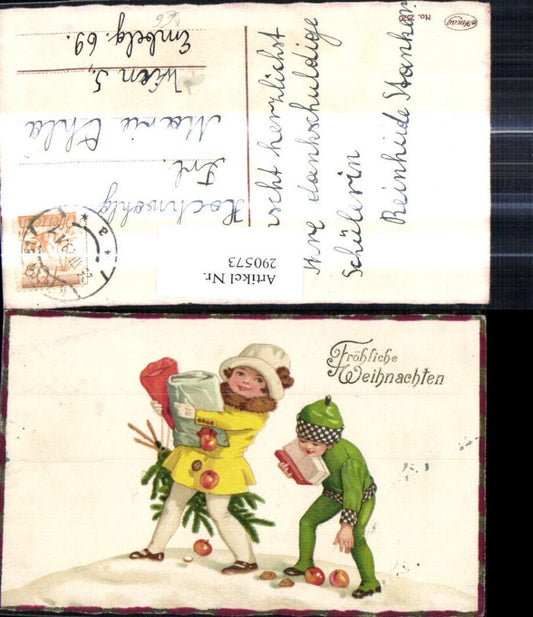 Hochwohlg.
Frl.
Marie Uhla
Wien 5,
Embelg. 69.
recht herzlichst
Ihre dankschuldige
Schülerin
Reinhilde
No.
Amag
Artikel Nr.
290573
Fröhliche
Weihnachten